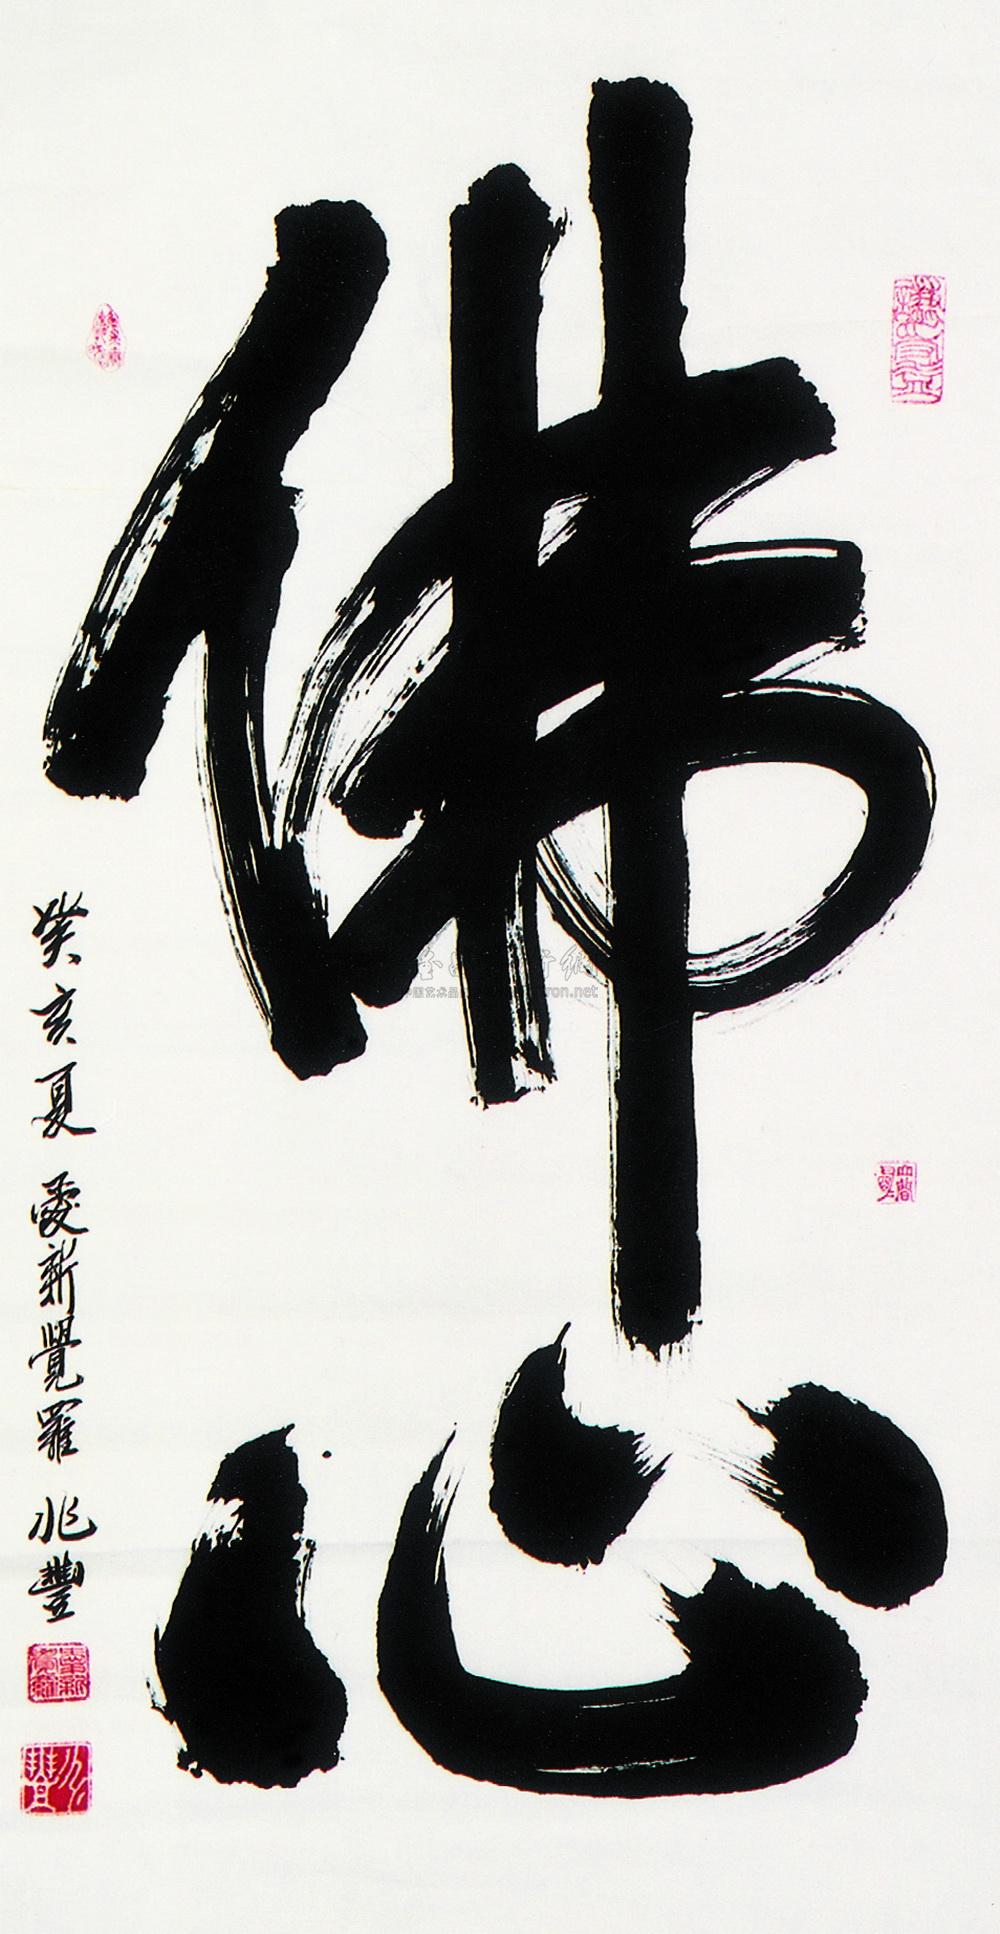 佛心
癸亥夏 愛新覺羅 兆豐